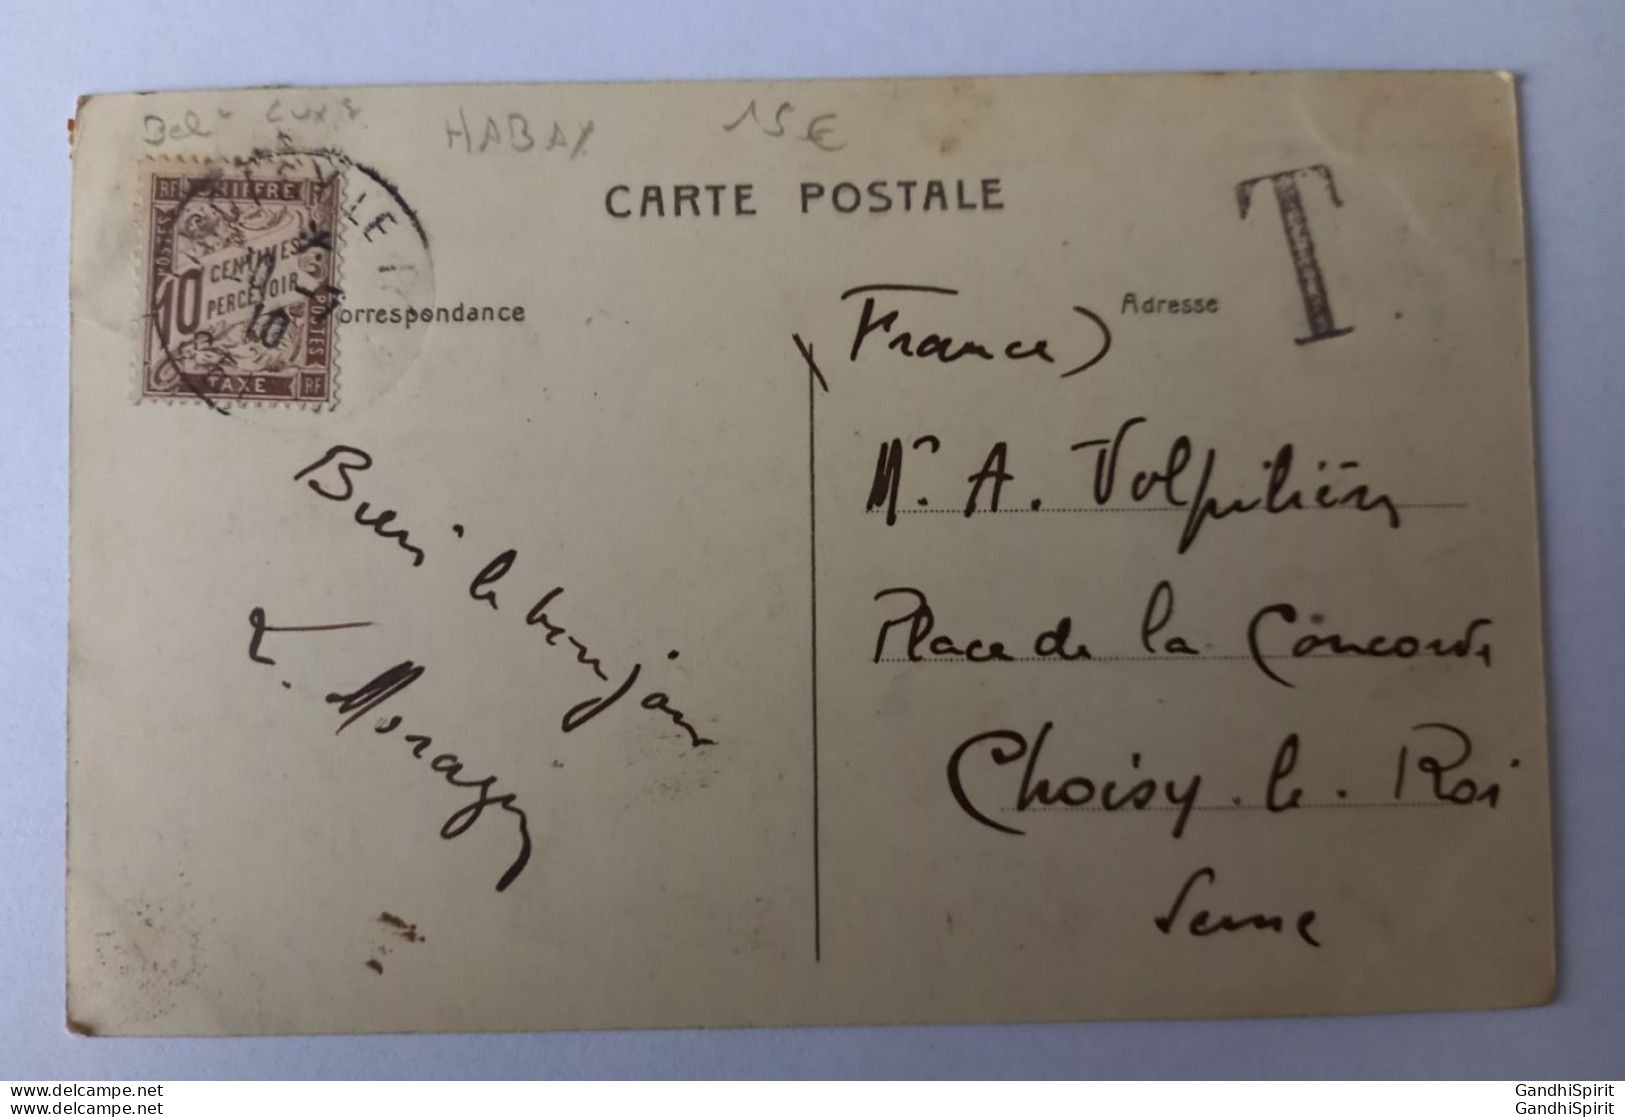 HABAY
15€
CARTE POSTALE
T
RF CHIFFRE RF
POSTES
10 CENTIMES
PERCEVOIR
POSTES
TAXE RF
10
Correspondance
Adresse
France)
Mr. A. Volpilièr
Place de la Concorde
Choisy-le-Roi
Seine
Bien le bonjour
www.delcampe.net
www.delcampe.net
GandhiSpirit
GandhiSpirit